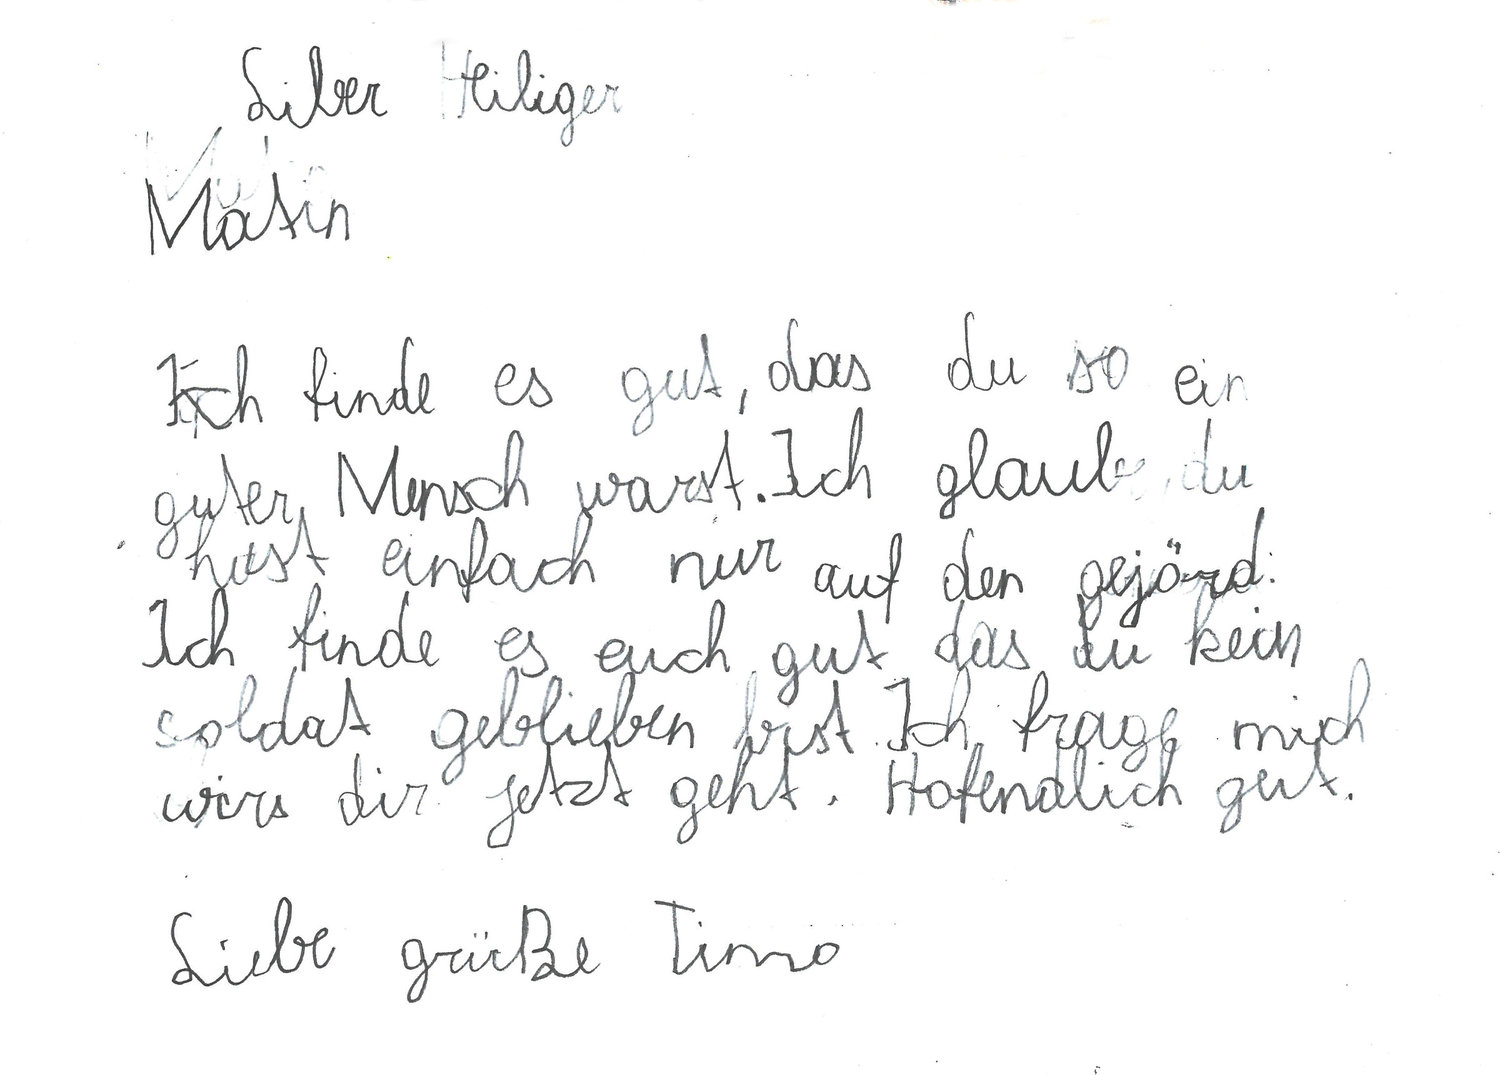 Liber Heiliger
Matin
Ich finde es gut, das du so ein
guter Mensch warst. Ich glaube, du
hast einfach nur auf den gejörd.
Ich finde es auch gut das du kein
soldat geblieben bist. Ich frage mich
wies dir jetzt geht. Hofendlich gut.
Liebe grüße Timo